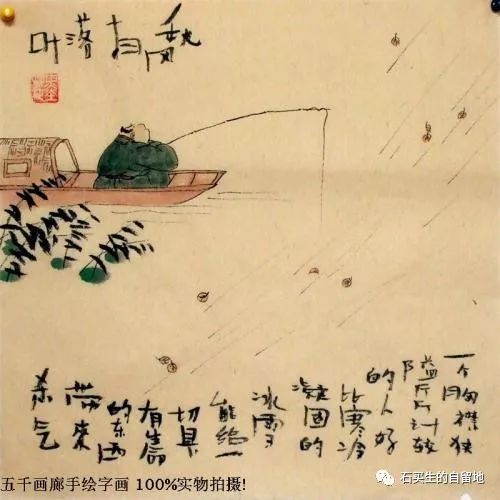 秋风扫落叶
一个胸襟狭
隘斤斤计较
的人好
比寒冷
凝固的
冰雪
能给一
切具
有生命
的东西
带来
杀气
五千画廊手绘字画 100%实物拍摄!
石买生的自留地